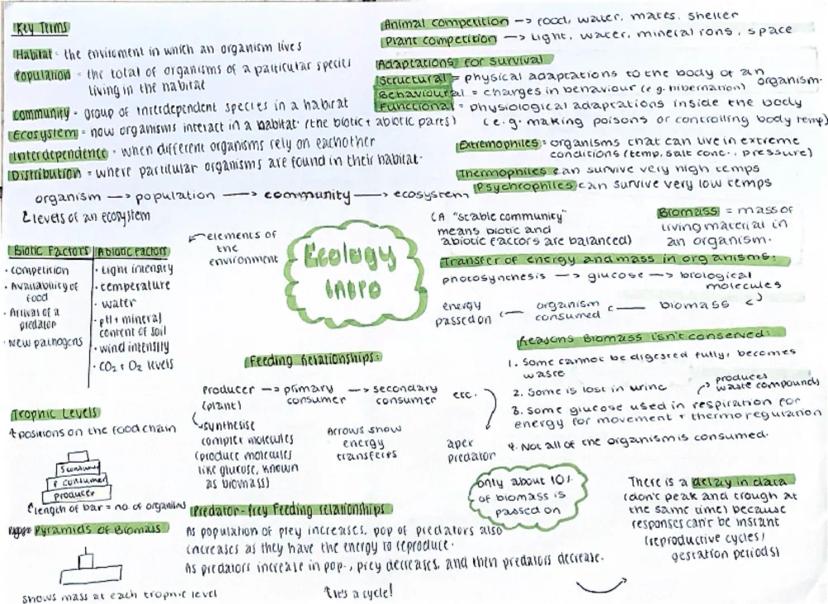 Key Terms
Habitat = the enviroment in which an organism lives
Population = the total of organisms of a particular species
living in the habitat
Community = group of interdependent species in a habitat
Ecosystem = how organisms interact in a habitat (the biotic + abiotic parts)
Interdependence = when different organisms rely on eachother
Distribution = where particular organisms are found in their habitat.
organism → population → community → ecosystem
levels of an ecosystem
Animal competition → food, water, mates, shelter
Plant competition → light, water, mineral ions, space
Adaptations for survival
Structural = physical adaptations to the body of an organism.
Behavioural = changes in behaviour (e.g. hibernation)
Functional = physiological adaptations inside the body
(e.g. making poisons or controlling body temp)
Extremophiles = organisms that can live in extreme
conditions (temp, salt conc., pressure)
Thermophiles can survive very high temps
Psychrophiles can survive very low temps
Biotic Factors
• competition
• Availability of
food
• Arrival of a
predator
• New pathogens
Abiotic factors
• light intensity
• temperature
• water
• pH + mineral
content of soil
• wind intensity
• CO2 + O2 levels
← elements of
the
environment
Ecology
Intro
(A "stable community"
means biotic and
abiotic factors are balanced)
Biomass = mass of
living material in
an organism.
Transfer of energy and mass in organisms:
photosynthesis → glucose → biological
molecules
energy
passed on ← organism
consumed ← biomass
Reasons Biomass isn't conserved:
1. Some cannot be digested fully, becomes
waste
2. Some is lost in urine
produces
waste compounds
3. Some glucose used in respiration for
energy for movement + thermoregulation
4. Not all of the organism is consumed.
Feeding Relationships:
producer → primary → secondary etc.
(plant) consumer consumer
synthesise
complex molecules
(produce molecules
like glucose, known
as biomass)
Arrows show
energy
transferes
apex
predator
Trophic Levels
positions on the food chain
s consumer
p consumer
producer
length of bar = no. of organisms
Pyramids of Biomass
shows mass at each trophic level
Predator-Prey Feeding relationships
As population of prey increases, pop of predators also
increases as they have the energy to reproduce.
As predators increase in pop., prey decreases, and then predators decrease.
it's a cycle!
only about 10%
of biomass is
passed on
There is a delay in data
(don't peak and trough at
the same time) because
responses can't be instant
(reproductive cycles/
gestation periods)